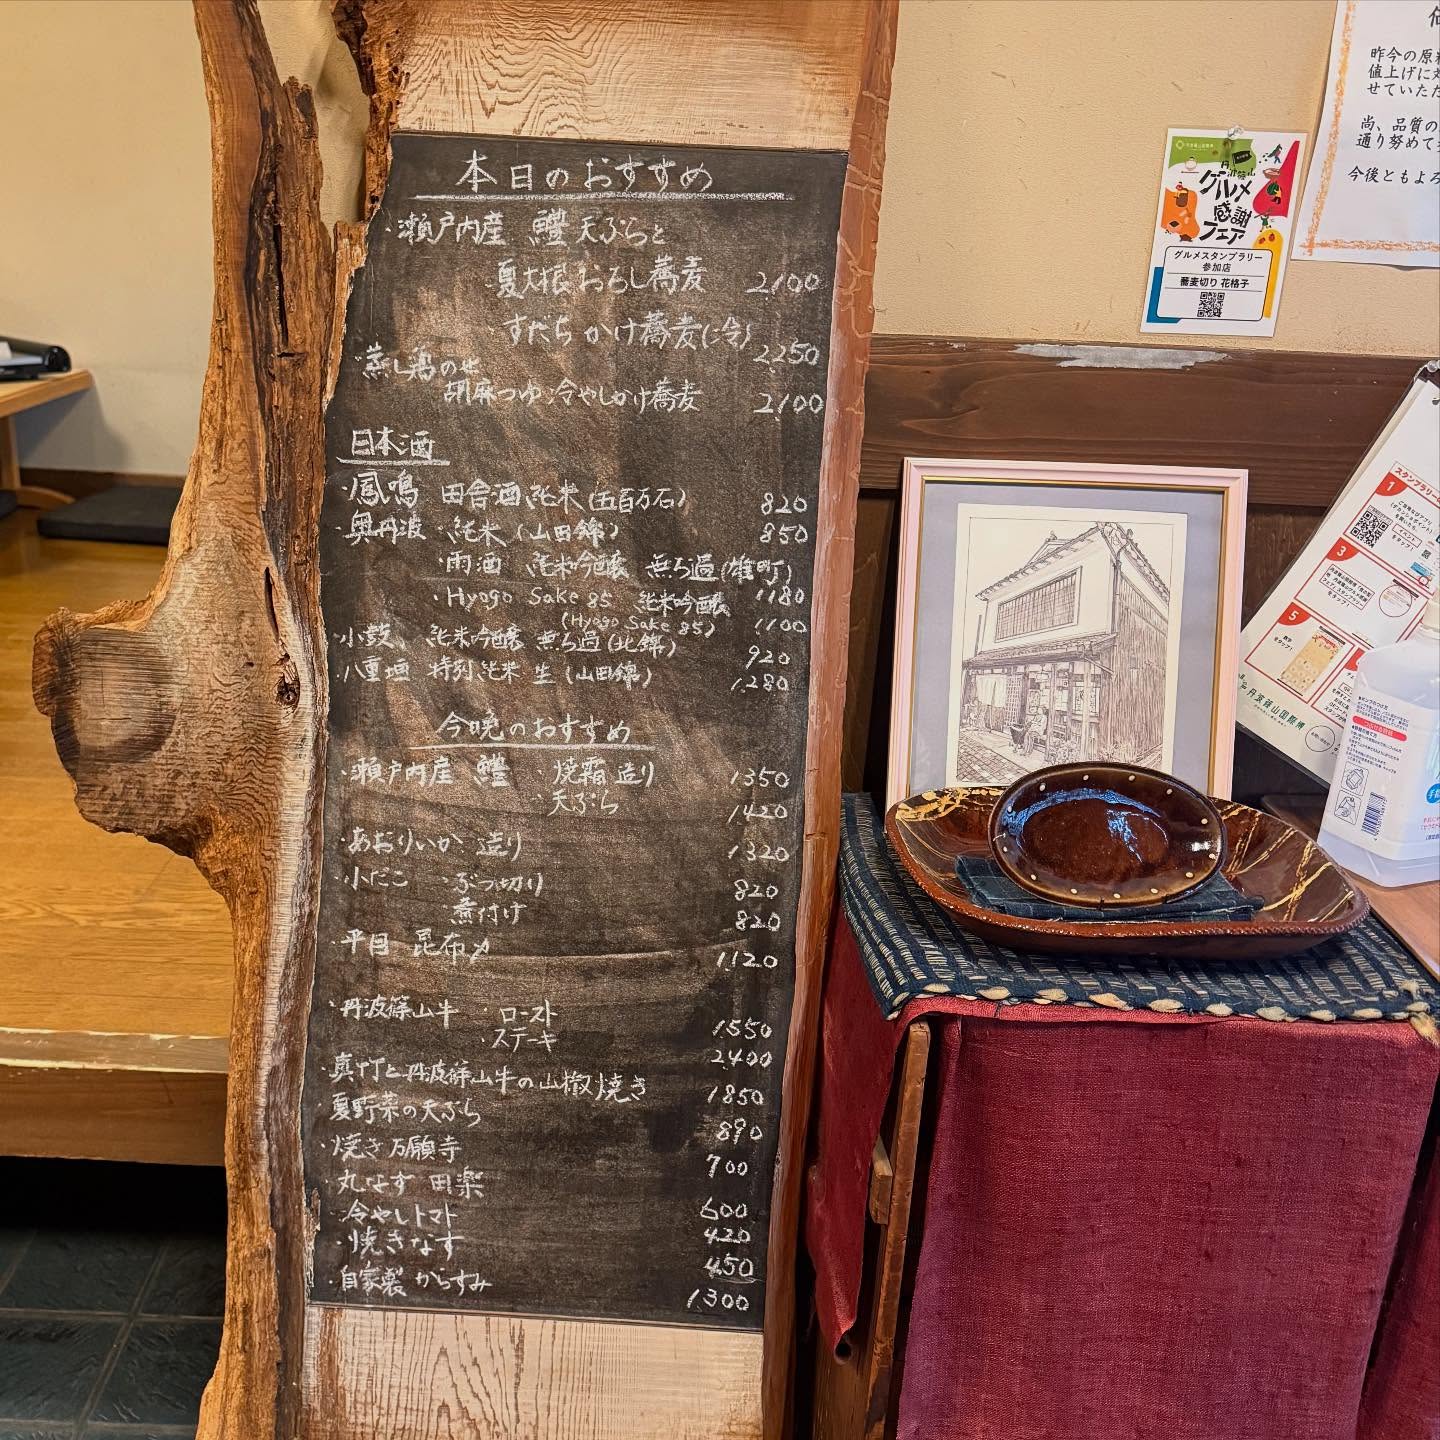 本日のおすすめ
・瀬戸内産 鱧 天ぷらと
夏大根おろし蕎麦 2,100
すだちかけ蕎麦(冷) 2,250
・蒸し鶏のせ
胡麻つゆ冷やしかけ蕎麦 2,100
日本酒
・鳳鳴 田舎酒 純米(五百万石) 820
・奥丹波・純米(山田錦) 850
・雨酒 純米吟醸 無ろ過(雄町) 1,180
・Hyogo Sake 85 純米吟醸
(Hyogo Sake 85) 1,100
・小鼓 純米吟醸 無ろ過(北錦) 920
・八重垣 特別純米 生(山田錦) 1,280
今晩のおすすめ
・瀬戸内産 鱧 ・焼霜造り 1,350
・天ぷら 1,420
・あおりいか 造り 1,320
・小だこ ・ぶつ切り 820
煮付け 820
・平目 昆布〆 1,120
・丹波篠山牛 ・ロースト 1,550
・ステーキ 2,400
・真竹と丹波篠山牛の山椒焼き 1,850
・夏野菜の天ぷら 890
・焼き万願寺 700
・丸なす 田楽 600
・冷やしトマト 420
・焼きなす 450
・自家製 からすみ 1,300
丹波篠山
グルメ
感謝
フェア
グルメスタンプラリー
参加店
蕎麦切り 花格子
昨今の原
値上げに
せていただ
尚、品質の
通り努めて
今後ともよろ
スタンプラリー
1
3
5
丹波篠山国際博